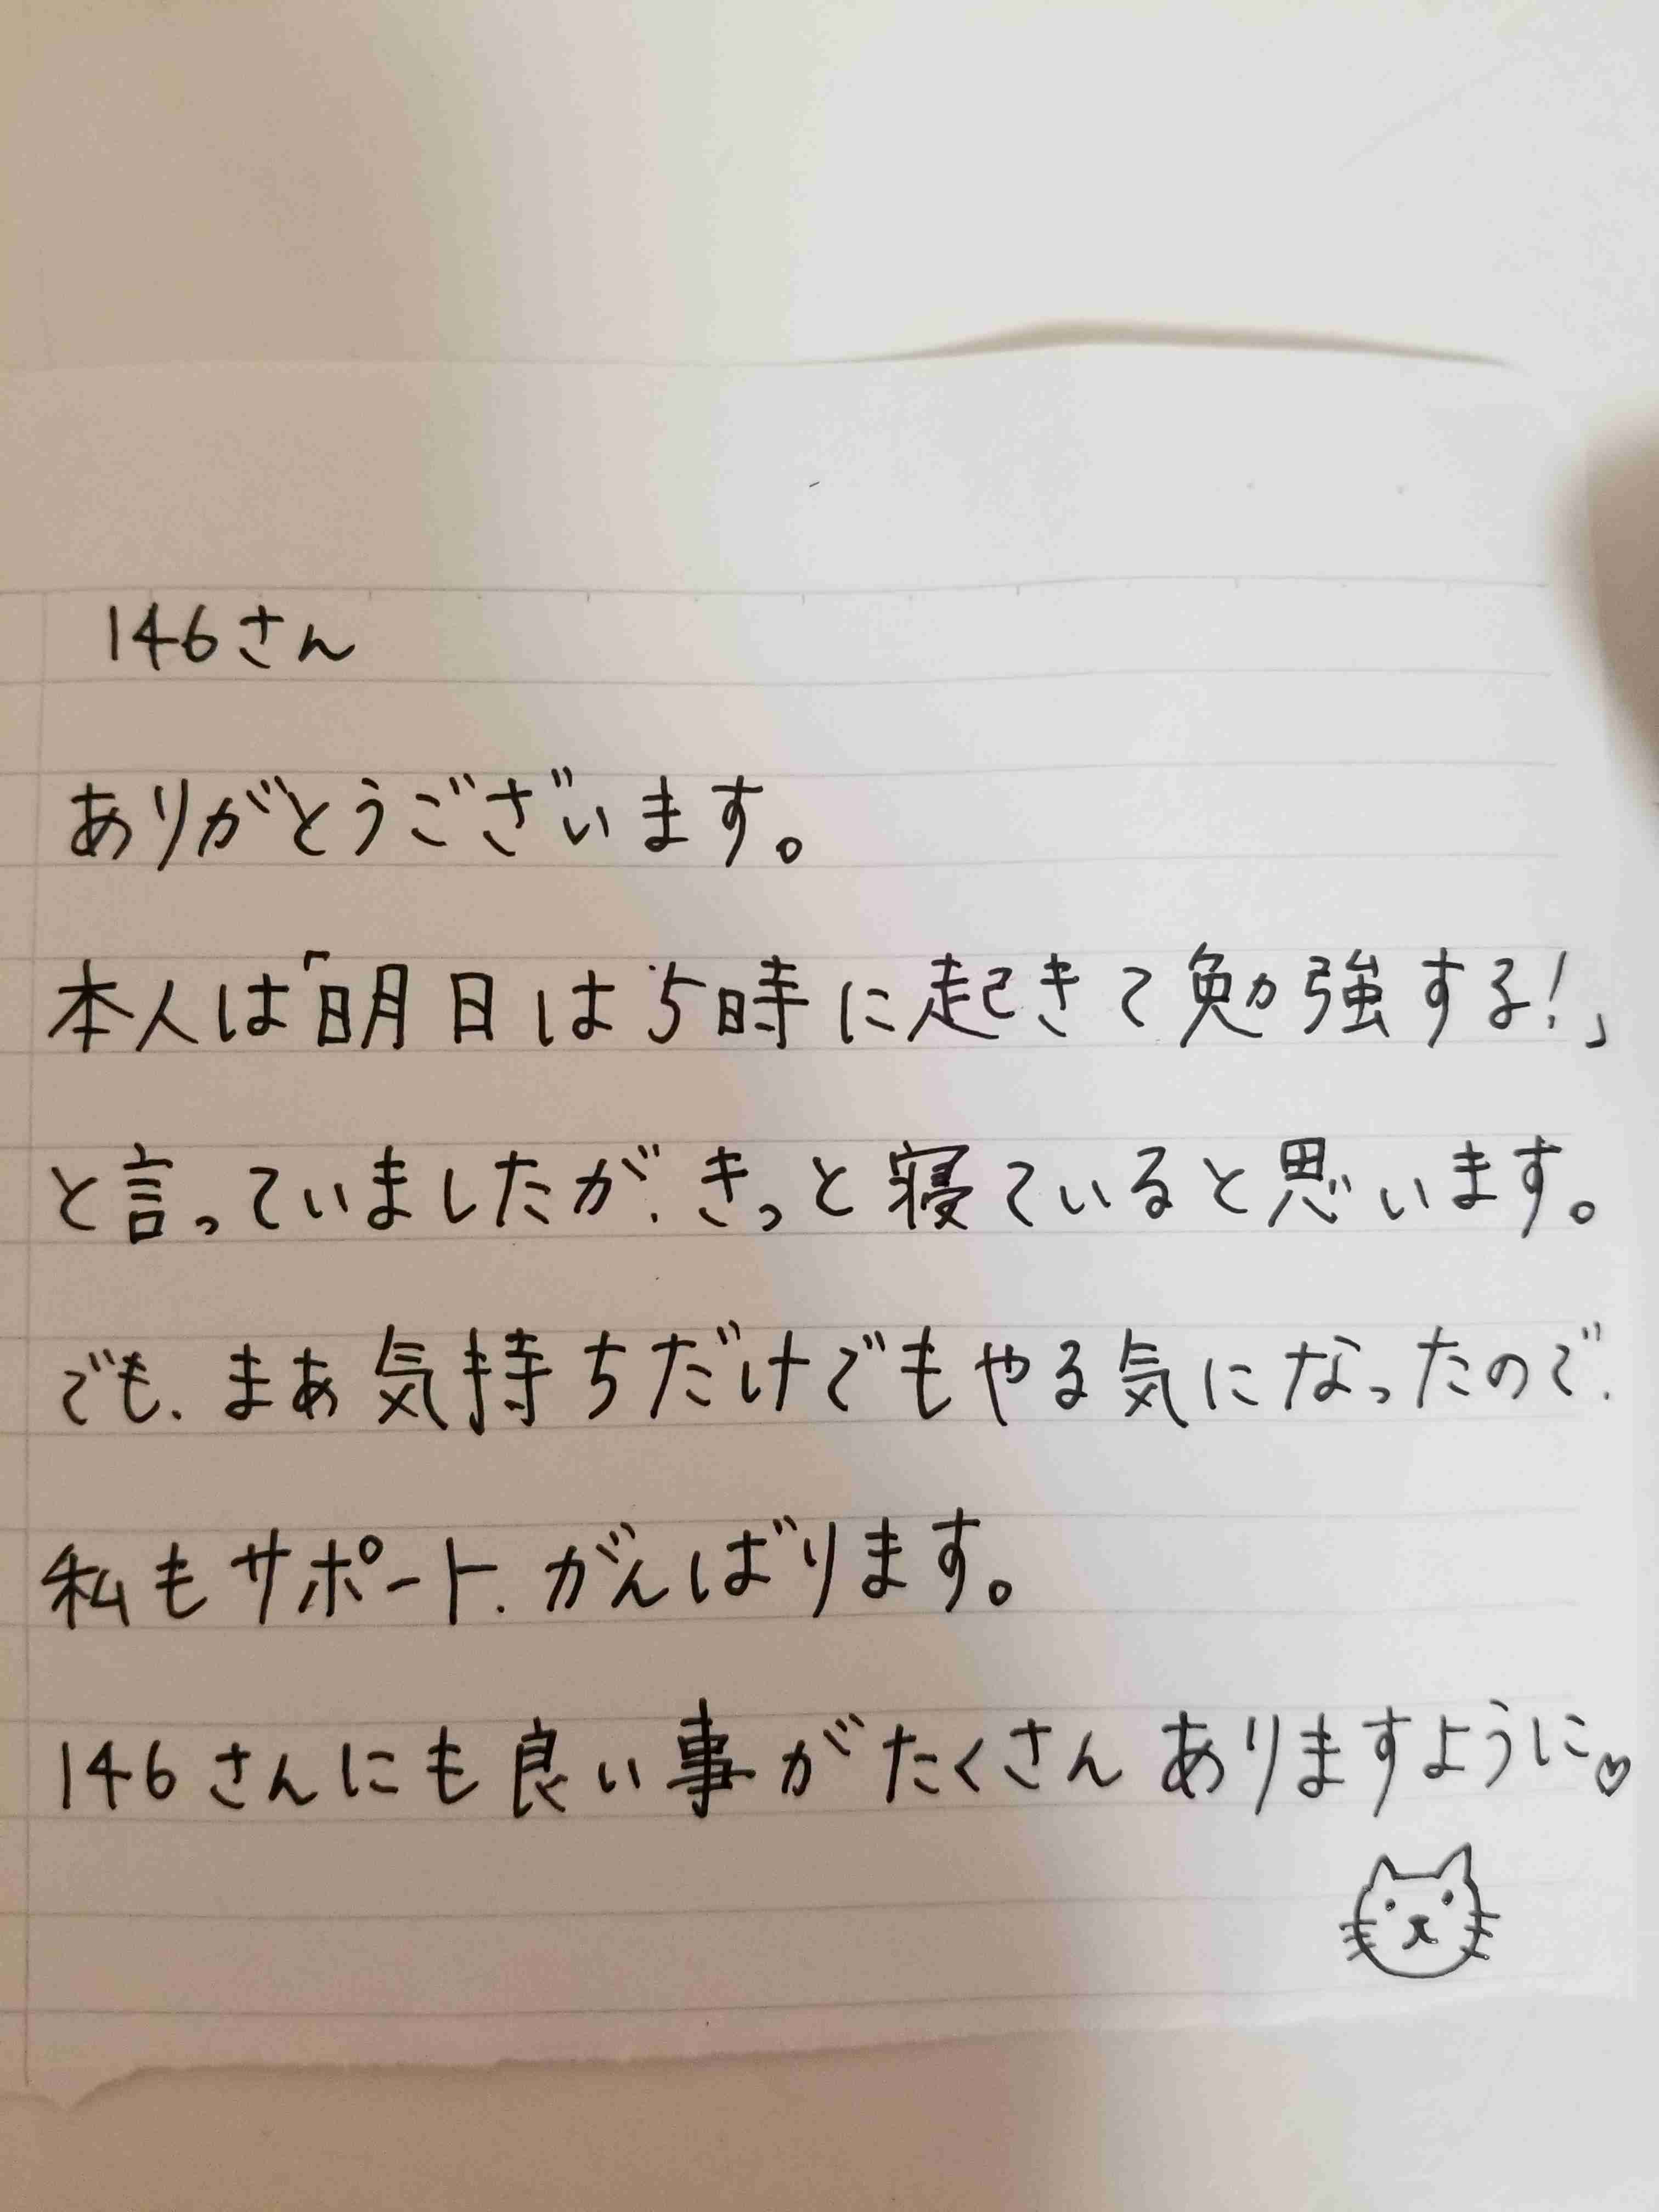 146さん
ありがとうございます。
本人は「明日は5時に起きて勉強する!」
と言っていましたが、きっと寝ていると思います。
でも、まぁ気持ちだけでもやる気になったので、
私もサポート、がんばります。
146さんにも良い事がたくさんありますように♡